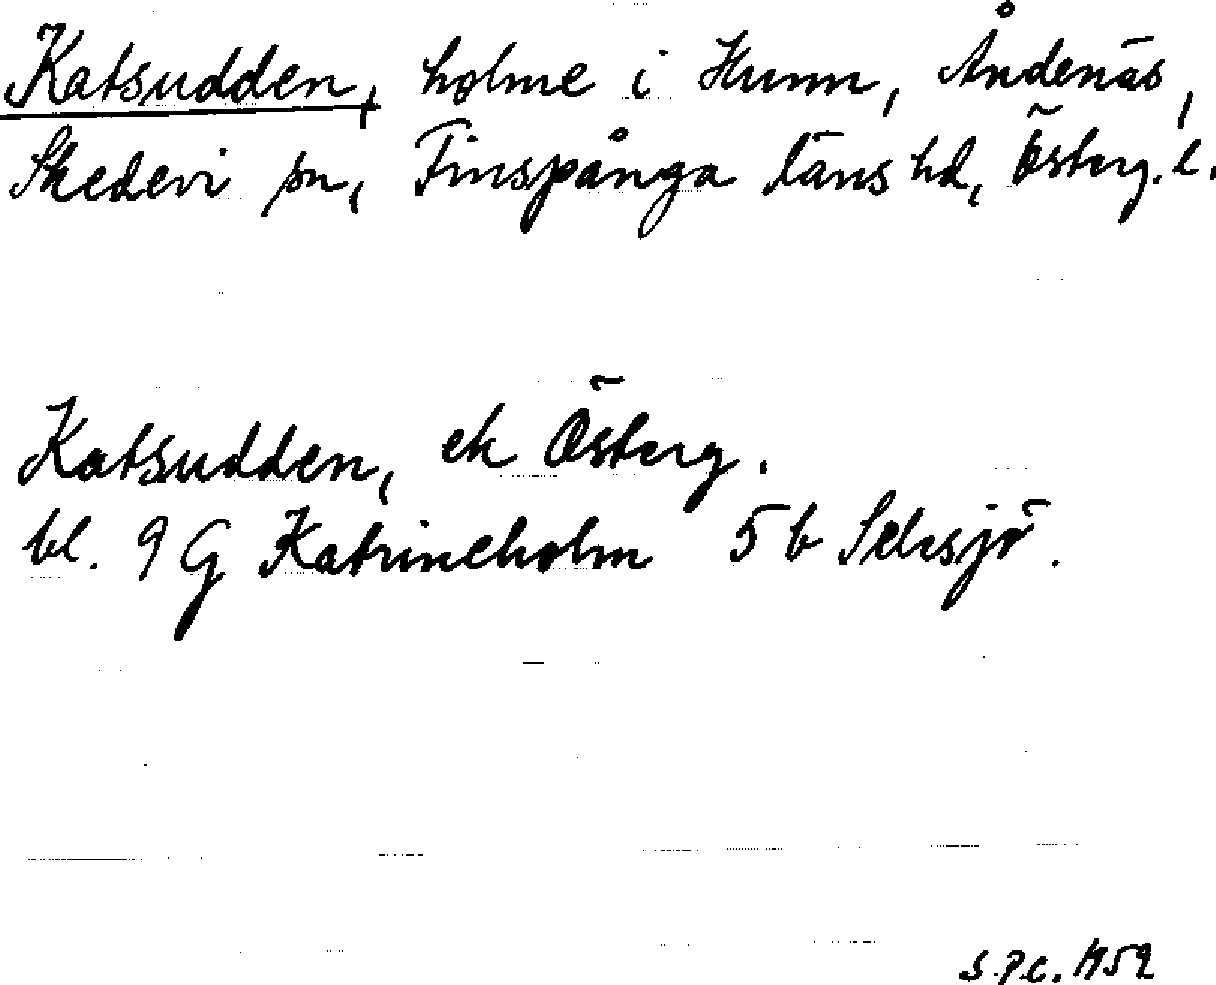 Katsudden, holme i Hunn, Åndenäs,
Skedevi sn, Finspånga läns hd, Österg. l.
Katsudden, ek Österg.
bl. 9 G Katrineholm 5 b
S.P.C. 1959